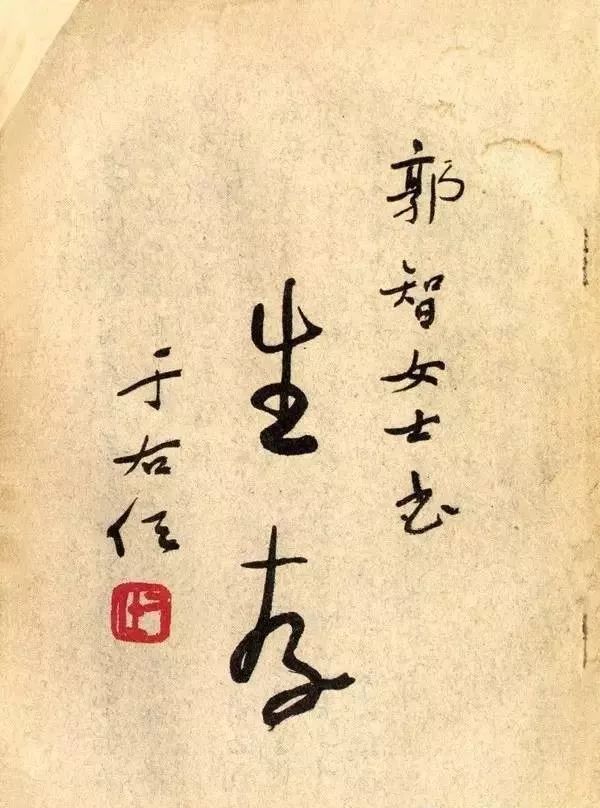 郭智女士书
生存
于右任